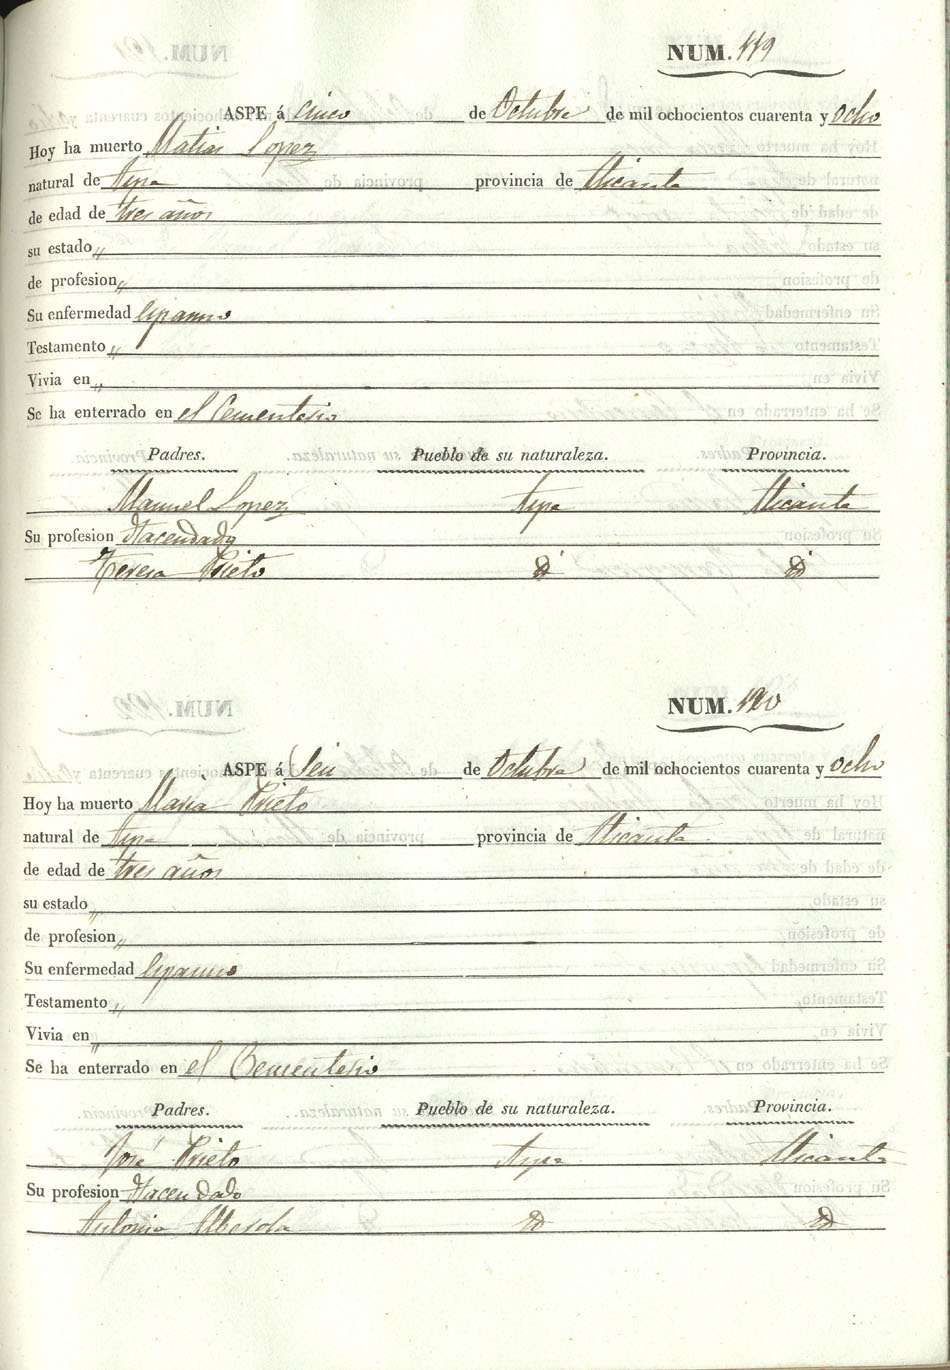 NUM. 119
ASPE á cinco de Octubre de mil ochocientos cuarenta y ocho
Hoy ha muerto Matias Lopez
natural de Aspe provincia de Alicante
de edad de tres años
su estado "
de profesion "
Su enfermedad
Testamento "
Vivia en "
Se ha enterrado en el Cementerio
Padres. Pueblo de su naturaleza. Provincia.
Manuel Lopez Aspe Alicante
Su profesion Hacendado
Teresa Prieto Id Id
NUM. 120
ASPE á Seis de Octubre de mil ochocientos cuarenta y ocho
Hoy ha muerto Maria Prieto
natural de Aspe provincia de Alicante
de edad de tres años
su estado "
de profesion "
Su enfermedad
Testamento "
Vivia en "
Se ha enterrado en el Cementerio
Padres. Pueblo de su naturaleza. Provincia.
José Prieto Aspe Alicante
Su profesion Hacendado
Antonia Alberola Id Id